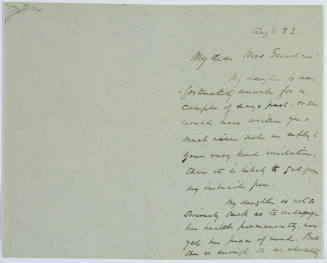 Augt 22
My dear Mrs
My daughter is un-
fortunately unwell for a
couple of days past, or she
would have written you a
much nicer note in reply to
your very kind invitation,
than it is likely to get from
my imbecile pen.
My daughter is not so
seriously sick as to endanger
her health permanently, nor
yet her peace of mind. But
she is enough so as absolutely